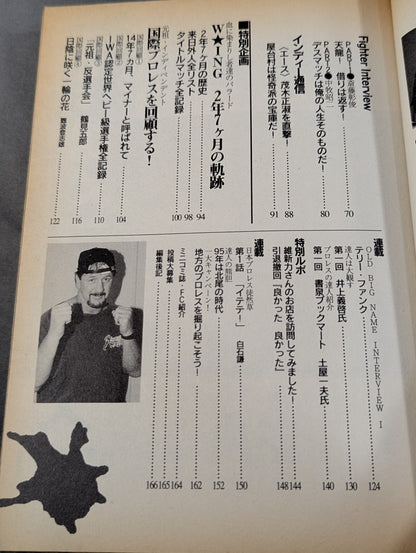 Fighter Interview
PART1●斎藤彰俊
天龍!借りは返す! 70
PART2●中牧昭二
デスマッチは俺の人生そのものだ! 80
インディー通信
〈エース〉茂木正淑を直撃! 88
屋台村は怪奇派の宝庫だ! 91
■特別企画
血に染まりし者達のバラード
W★ING 2年7ヶ月の軌跡
2年7ヶ月の歴史 94
来日外人全リスト 98
タイトルマッチ全記録 100
元祖・インディペンデント
国際プロレスを回顧する!
国際回顧①
14年7カ月、マイナーと呼ばれて 104
国際回顧②
IWA認定世界ヘビー級選手権全記録 110
国際回顧③
「元祖・反選手会」 鶴見五郎 116
国際回顧④
日陰に咲く一輪の花 難波登志雄 122
連載
OLD BIG NAME INTERVIEW I
テリー・ファンク 124
達人は人を観す
第一回 井上義啓氏 130
プロレスの達人紹介
第一回 書泉ブックマート 土屋一夫氏 140
特別ルポ
維新力さんのお店を訪問してみました! 144
引退撤回『良かった 良かった』 148
連載
日本プロレス徒然草
第1話「イテテ!」 白石謙 150
達人の熊胆
95年は北尾の時代 152
一大キャンペーン!
地方のプロレスを掘り起こそう! 162
ミニコミ誌・FC紹介 164
投稿大募集 165
編集後記 166